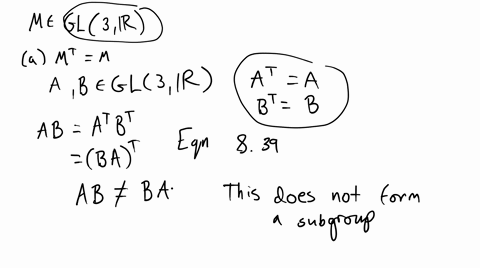 M ∈ GL(3,ℝ)
(a) Mᵀ = M
A, B ∈ GL(3,ℝ)
Aᵀ = A
Bᵀ = B
AB = AᵀBᵀ
= (BA)ᵀ
Eqn 8.39
AB ≠ BA.
This does not form
a subgroup